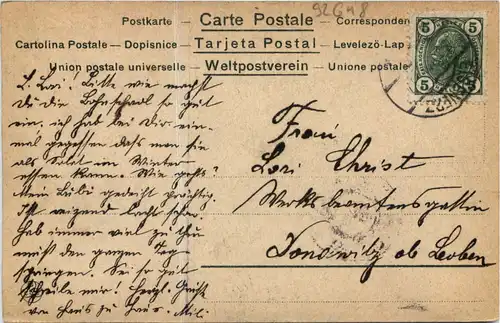 92648
Postkarte — Carte Postale — Corresponden
Cartolina Postale — Dopisnice — Tarjeta Postal — Levelező-Lap
Union postale universelle — Weltpostverein — Unione postale
5 5
5 5
L. Lori! Bitte wie machst
du die Bohnschoal so gut
ein, ich hab bei Dir ein-
mal gegessen dass man sie
als Salat im Winter
essen kann. Wie gehts?
Mein Bubi gedeiht prächtig.
Ist reizend lacht schon.
Hab immer viel zu thun
muß den ganzen Tag
springen. Sei so gut
schreibe mir! Herzl. Grüße
von Haus zu Haus. Mili
Frau
Lori Christ
Werksbeamtensgattin
Donawitz ob Leoben